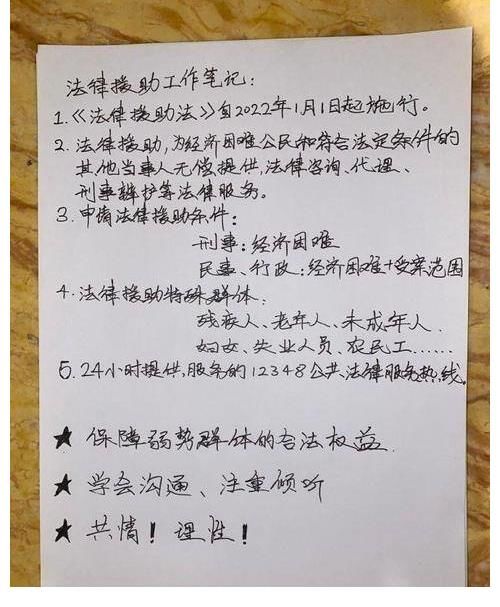 法律援助工作笔记：
1.《法律援助法》自2022年1月1日起施行。
2.法律援助，为经济困难公民和符合法定条件的
其他当事人无偿提供，法律咨询、代理、
刑事辩护等法律服务。
3.申请法律援助条件：
刑事：经济困难
民事、行政：经济困难+受案范围
4.法律援助特殊群体：
残疾人、老年人、未成年人、
妇女、失业人员、农民工……
5.24小时提供，服务的12348公共法律服务热线。
★ 保障弱势群体的合法权益
★ 学会沟通、注重倾听
★ 共情！理性！